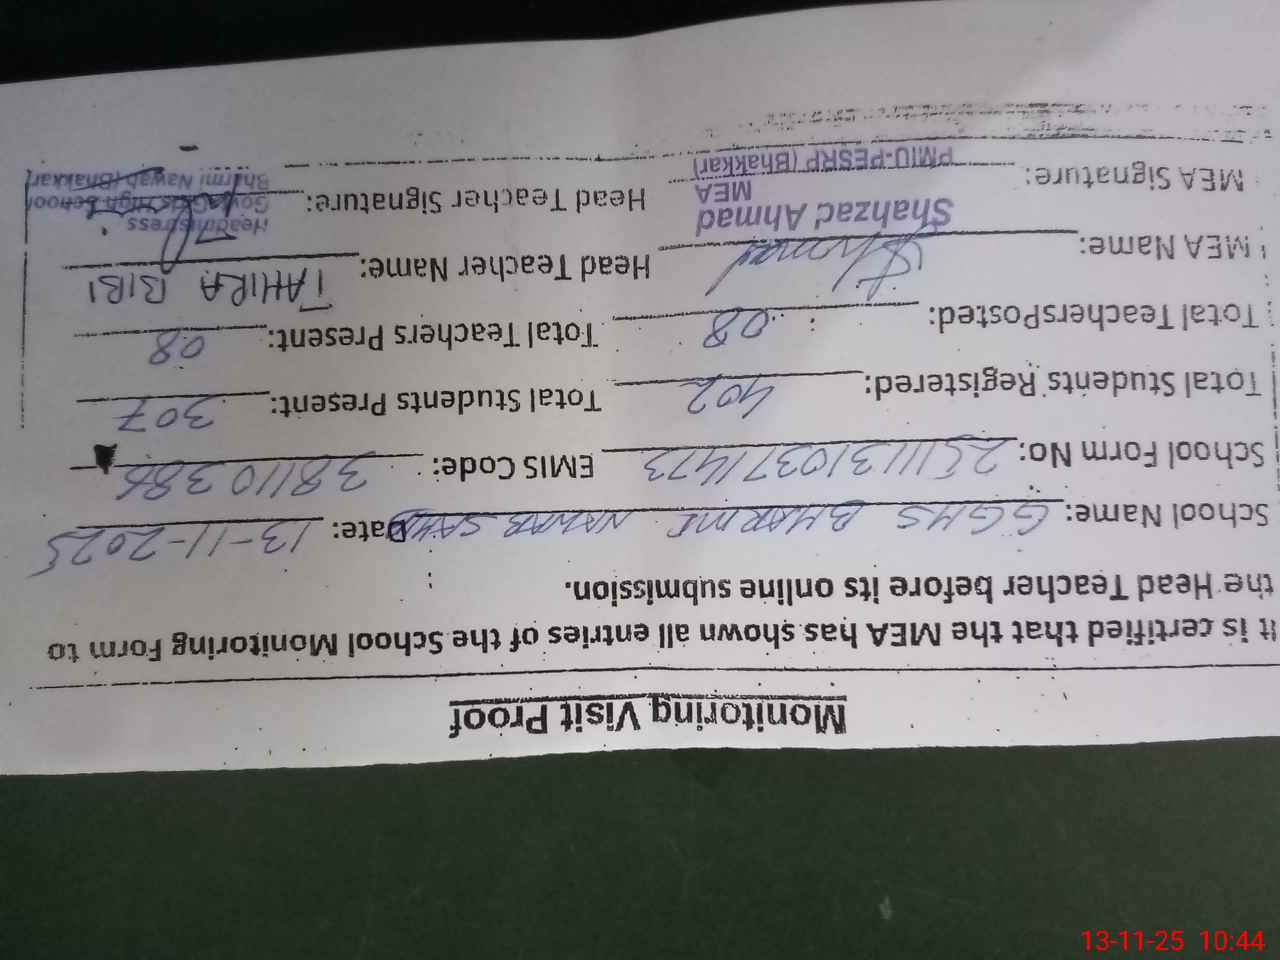 Monitoring Visit Proof
It is certified that the MEA has shown all entries of the School Monitoring Form to
the Head Teacher before its online submission.
School Name: GGHS BHARMI NAWAB SAHIB Date: 13-11-2025
School Form No: EMIS Code: 38110386
Total Students Registered: 402 Total Students Present: 307
Total TeachersPosted: 08 Total Teachers Present: 08
MEA Name: Head Teacher Name: TAHIRA BIBI
MEA Signature: Shahzad Ahmad Head Teacher Signature: Headmistress
MEA Govt. Girls High School
PMIU-PESRP (Bhakkar) Bharmi Nawab (Bhakkar)
13-11-25 10:44